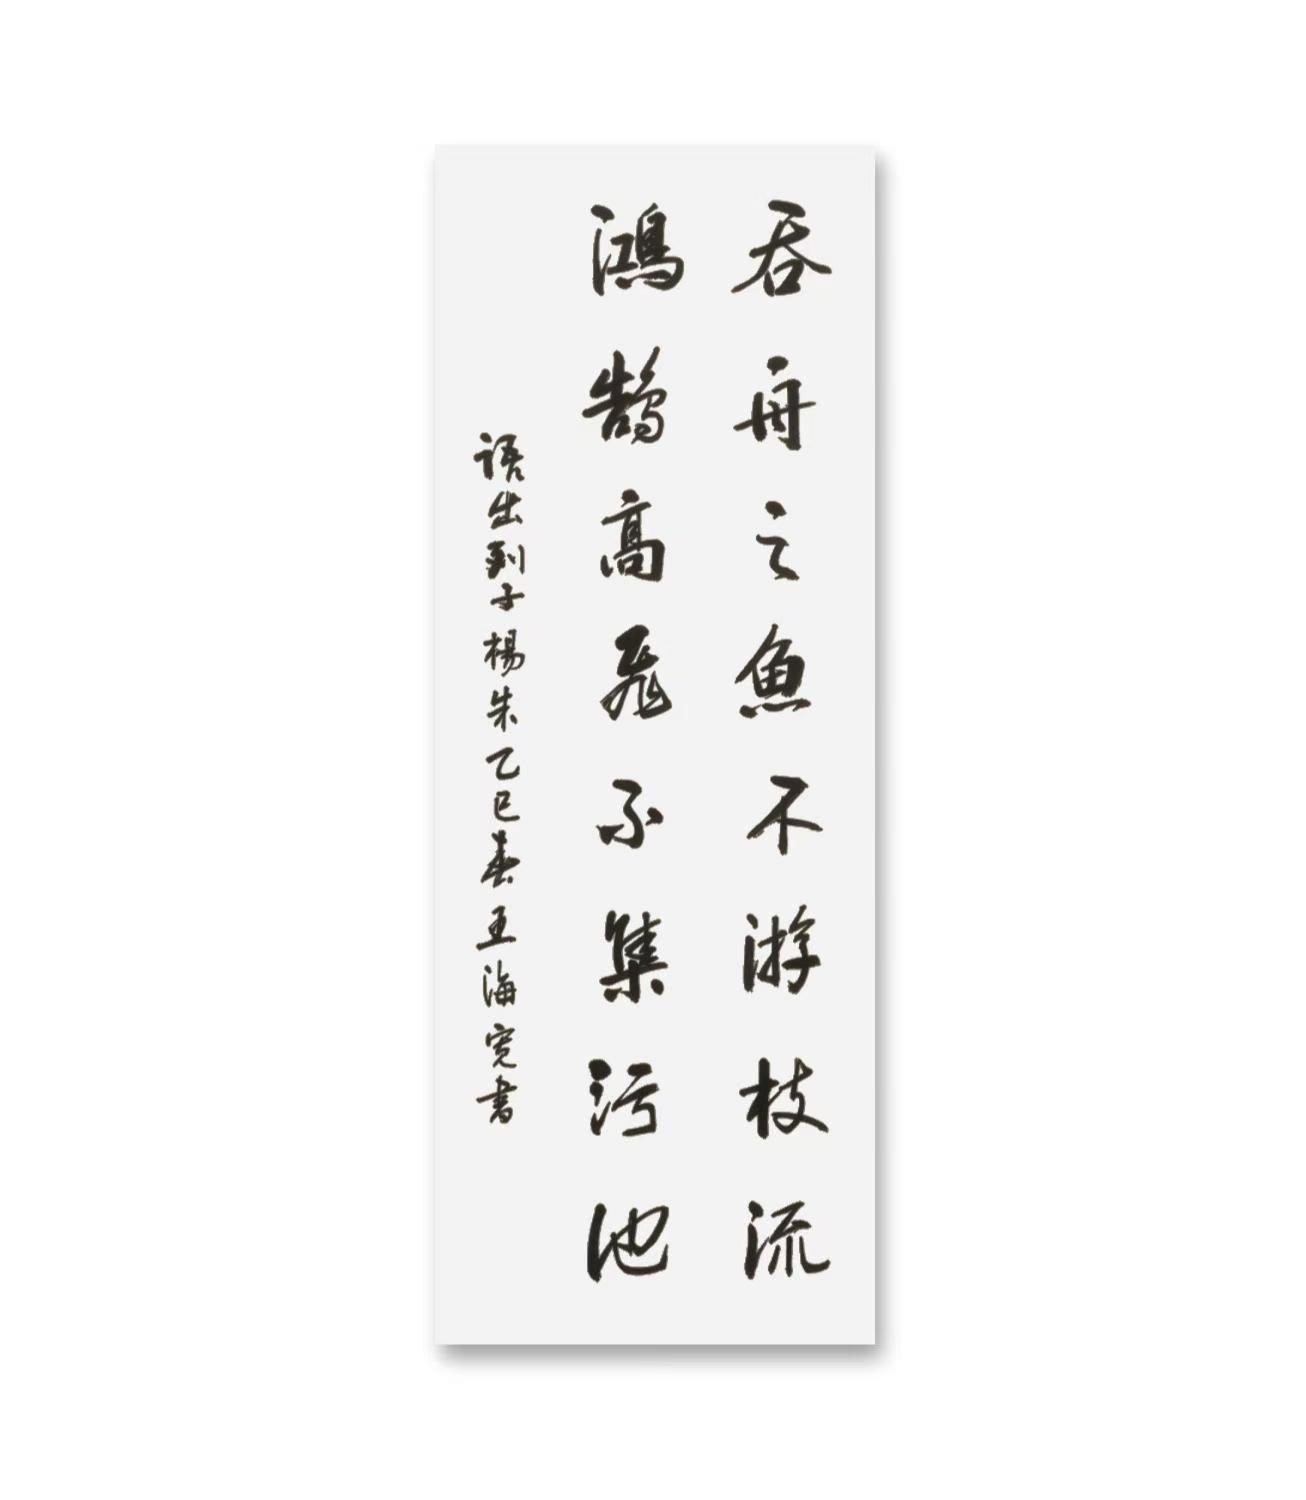 吞舟之魚不游枝流
鴻鵠高飛不集污池
语出列子楊朱乙巳春王海宽書